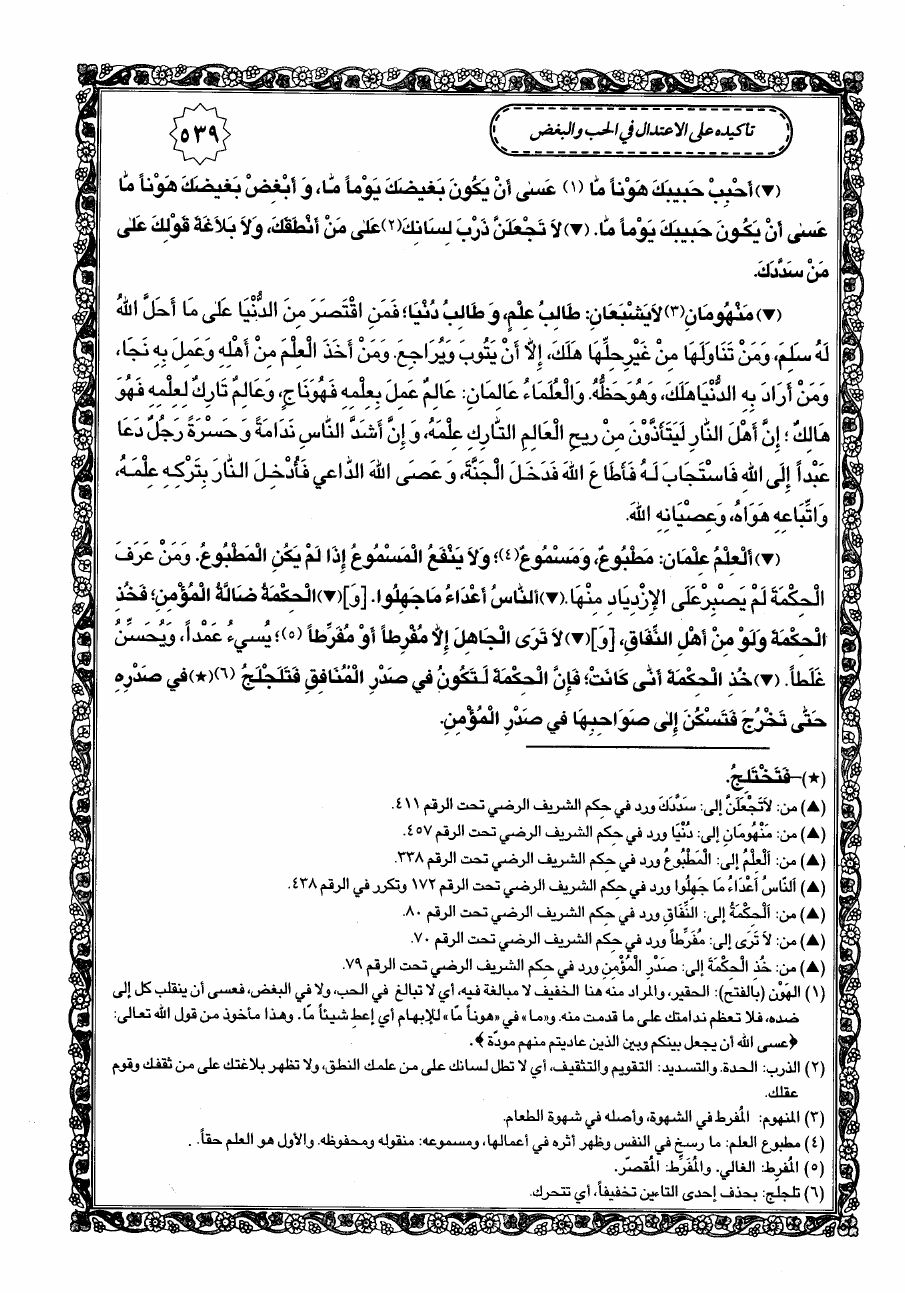 تأكيده على الاعتدال في الحب والبغض
٥٣٩
(▼) أَحْبِبْ حَبِيبَكَ هَوْناً مَّا (١) عَسىٰ أَنْ يَكُونَ بَغيضَكَ يَوْماً مَّا، وَ أَبْغِضْ بَغيضَكَ هَوْناً مَّا
عَسىٰ أَنْ يَكُونَ حَبيبَكَ يَوْماً مَّا. (▼) لاَ تَجْعَلَنَّ ذَرْبَ لِسَانِكَ(٢) عَلىٰ مَنْ أَنْطَقَكَ، وَلاَ بَلاَغَةَ قَوْلِكَ عَلىٰ
مَنْ سَدَّدَكَ.
(▼) مَنْهُومَانِ(٣) لاَيَشْبَعَانِ: طَالِبُ عِلْمٍ، وَ طَالِبُ دُنْيَا؛ فَمَنِ اقْتَصَرَ مِنَ الدُّنْيَا عَلىٰ مَا أَحَلَّ اللهُ
لَهُ سَلِمَ، وَمَنْ تَنَاوَلَهَا مِنْ غَيْرِ حِلِّهَا هَلَكَ، إِلاَّ أَنْ يَتُوبَ وَيُرَاجِعَ. وَمَنْ أَخَذَ الْعِلْمَ مِنْ أَهْلِهِ وَعَمِلَ بِهِ نَجَا،
وَمَنْ أَرَادَ بِهِ الدُّنْيَا هَلَكَ، وَهُوَ حَظُّهُ. وَالْعُلَمَاءُ عَالِمَانِ: عَالِمٌ عَمِلَ بِعِلْمِهِ فَهُوَ نَاجٍ، وَعَالِمٌ تَارِكٌ لِعِلْمِهِ فَهُوَ
هَالِكٌ؛ إِنَّ أَهْلَ النَّارِ لَيَتَأَذَّوْنَ مِنْ ريحِ الْعَالِمِ التَّارِكِ عِلْمَهُ، وَ إِنَّ أَشَدَّ النَّاسِ نَدَامَةً وَ حَسْرَةً رَجُلٌ دَعَا
عَبْداً إِلَى اللهِ فَاسْتَجَابَ لَهُ فَأَطَاعَ اللهَ فَدَخَلَ الْجَنَّةَ، وَ عَصَى اللهَ الدَّاعي فَأُدْخِلَ النَّارَ بِتَرْكِهِ عِلْمَهُ،
وَ اتِّبَاعِهِ هَوَاهُ، وَعِصْيَانِهِ اللهَ.
(▼) اَلْعِلْمُ عِلْمَانِ: مَطْبُوعٌ، وَمَسْمُوعٌ(٤)؛ وَلاَ يَنْفَعُ الْمَسْمُوعُ إِذَا لَمْ يَكُنِ الْمَطْبُوعُ. وَمَنْ عَرَفَ
الْحِكْمَةَ لَمْ يَصْبِرْ عَلَى الاِزْدِيَادِ مِنْهَا. (▼) اَلنَّاسُ أَعْدَاءُ مَا جَهِلُوا. [وَ](▼) الْحِكْمَةُ ضَالَّةُ الْمُؤْمِنِ؛ فَخُذِ
الْحِكْمَةَ وَلَوْ مِنْ أَهْلِ النِّفَاقِ، [وَ](▼) لاَ تَرَى الْجَاهِلَ إِلاَّ مُفْرِطاً أَوْ مُفَرِّطاً (٥)؛ يُسيءُ عَمْداً، وَيُحْسِنُ
غَلَطاً. (▼) خُذِ الْحِكْمَةَ أَنّىٰ كَانَتْ؛ فَإِنَّ الْحِكْمَةَ لَتَكُونُ في صَدْرِ الْمُنَافِقِ فَتَلَجْلَجُ (٦)(★) في صَدْرِهِ
حَتّىٰ تَخْرُجَ فَتَسْكُنَ إِلىٰ صَوَاحِبِهَا في صَدْرِ الْمُؤْمِنِ.
(★)-فَتَخْتَلِجُ.
(▲) من: لاَتَجْعَلَنَّ إلى: سَدَّدَكَ ورد في حكم الشريف الرضي تحت الرقم ٤١١.
(▲) من: مَنْهُومَانِ إلى: دُنْيَا ورد في حكم الشريف الرضي تحت الرقم ٤٥٧.
(▲) من: اَلْعِلْمُ إلى: الْمَطْبُوعُ ورد في حكم الشريف الرضي تحت الرقم ٣٣٨.
(▲) اَلنَّاسُ أَعْدَاءُ مَا جَهِلُوا ورد في حكم الشريف الرضي تحت الرقم ١٧٢ وتكرر في الرقم ٤٣٨.
(▲) من: اَلْحِكْمَةُ إلى: النِّفَاقِ ورد في حكم الشريف الرضي تحت الرقم ٨٠.
(▲) من: لاَ تَرَى إلى: مُفَرِّطاً ورد في حكم الشريف الرضي تحت الرقم ٧٠.
(▲) من: خُذِ الْحِكْمَةَ إلى: صَدْرِ الْمُؤْمِنِ ورد في حكم الشريف الرضي تحت الرقم ٧٩.
(١) الهَوْن (بالفتح): الحقير، والمراد منه هنا الخفيف لا مبالغة فيه، أي لا تبالغ في الحب، ولا في البغض، فعسى أن ينقلب كل إلى
ضده، فلا تعظم ندامتك على ما قدمت منه. و«ما» في «هوناً مّا» للإبهام أي إعط شيئاً مّا. وهذا مأخوذ من قول الله تعالى:
﴿عسى الله أن يجعل بينكم وبين الذين عاديتم منهم مودّة﴾.
(٢) الذرب: الحدة. والتسديد: التقويم والتثقيف، أي لا تطل لسانك على من علمك النطق، ولا تظهر بلاغتك على من ثقفك وقوم
عقلك.
(٣) المنهوم: المُفرط في الشهوة، وأصله في شهوة الطعام.
(٤) مطبوع العلم: ما رسخ في النفس وظهر أثره في أعمالها، ومسموعه: منقوله ومحفوظه. والأول هو العلم حقاً.
(٥) المُفرِط: الغالي. والمُفَرِّط: المُقصّر.
(٦) تلجلج: بحذف إحدى التاءين تخفيفاً، أي تتحرك.